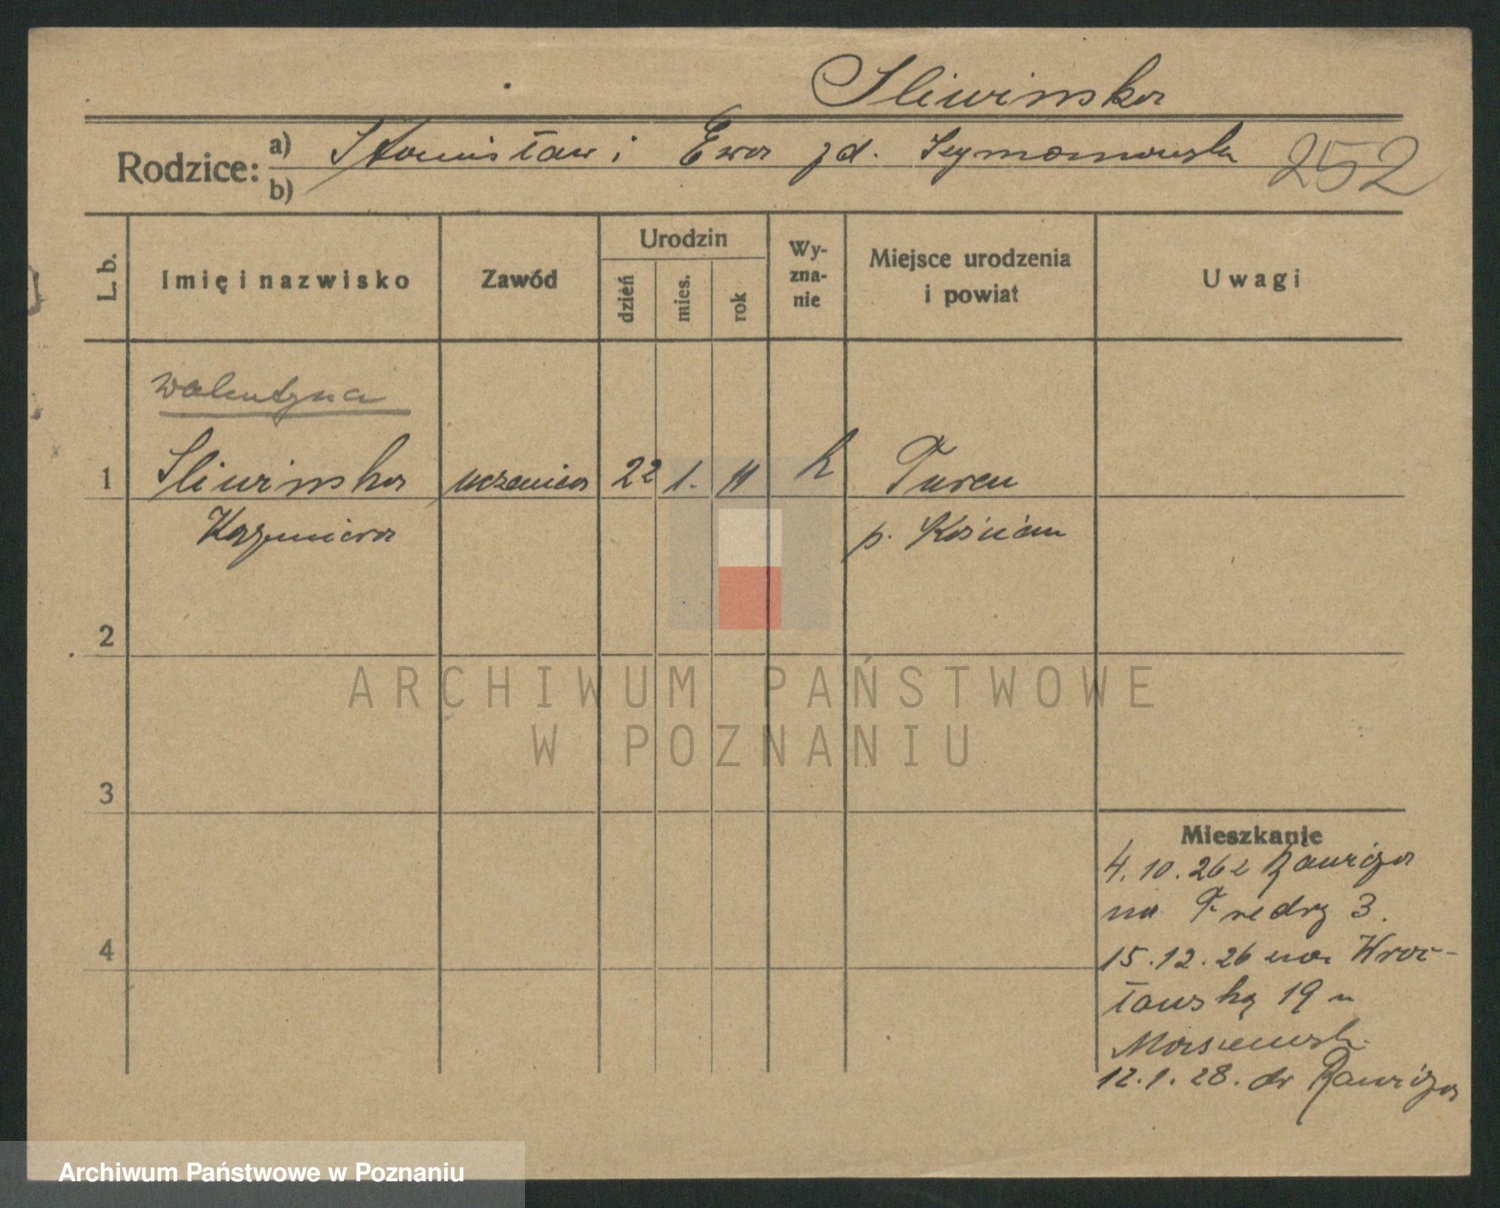 Sliwinska
Rodzice: a) Stanisław i Ewa zd. Szymanowska 252
b)
L. b. Imię i nazwisko Zawód Urodzin dzień mies. rok Wy-zna-nie Miejsce urodzenia i powiat Uwagi
Walentyna
1 Sliwinska uczenica 22 1. 11 k Turew
Kazimiera p. Kościan
2
ARCHIWUM PAŃSTWOWE
W POZNANIU
3
Mieszkanie
4. 10. 26 z Rawicza
na Fredry 3.
4
15. 12. 26 na Wroc-
ławską 19 u
12. 1. 28. do Rawicza
Archiwum Państwowe w Poznaniu